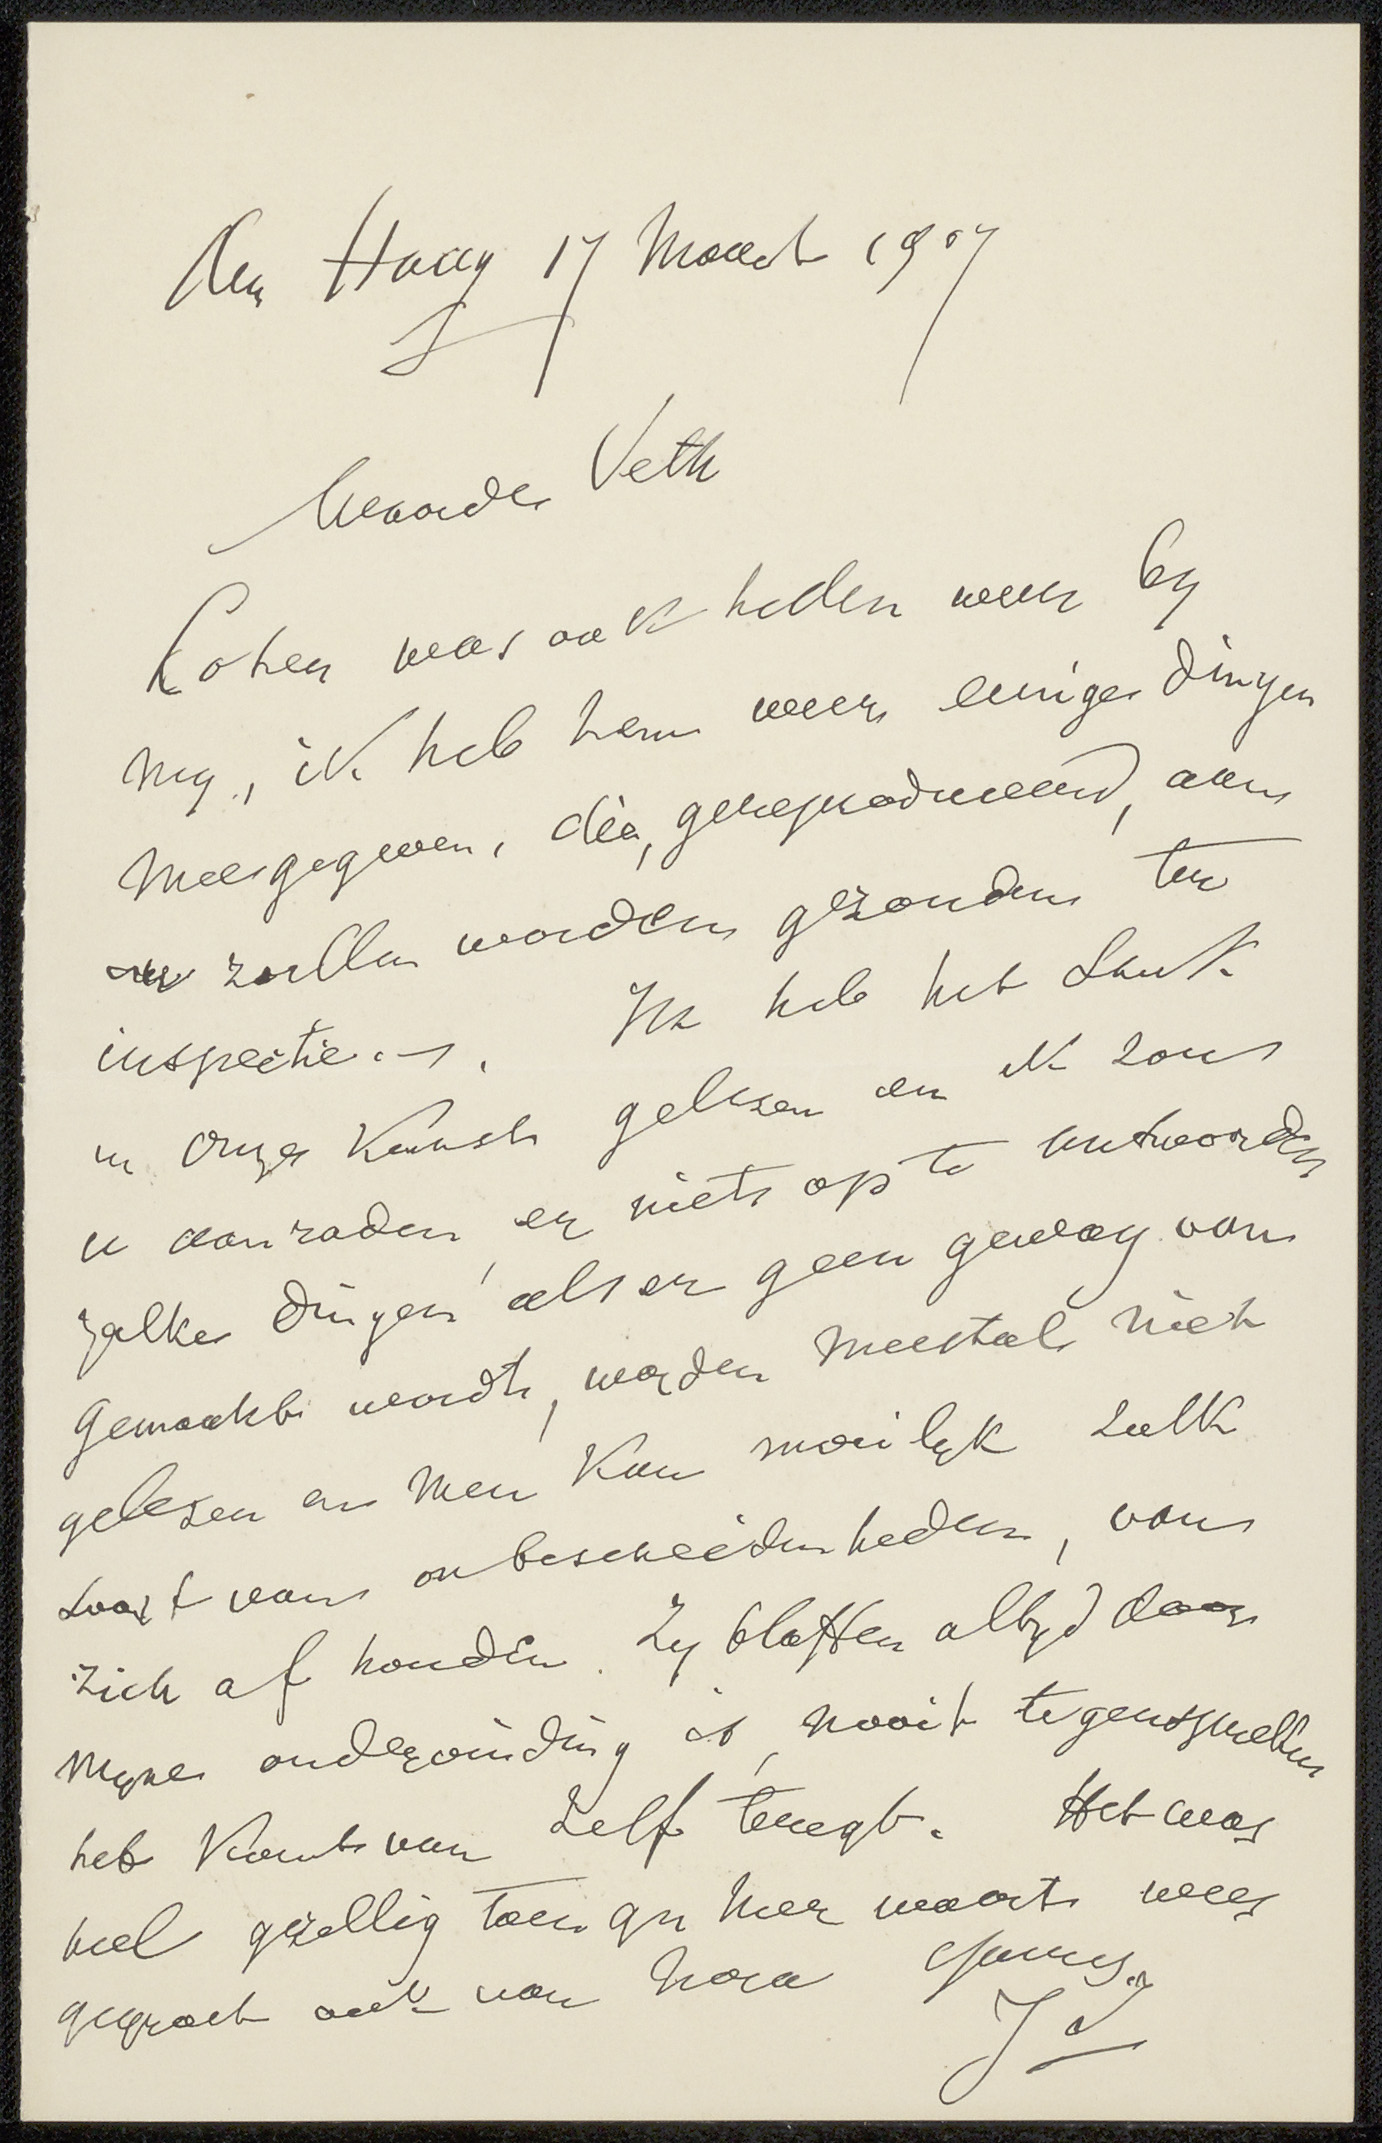 Den Haag 17 Maart 1907
Waarde Veth
Cohen was ook heden weer by
my, ik heb hem weer eenige dingen
meegegeven, die, gereproduceerd, aan
u zullen worden gezonden ter
inspectie. Ik heb het stuk
in Onze Kunst gelezen en ik zou
u aanraden, er niets op te antwoorden
zulke dingen als er geen gewag van
gemaakt wordt, worden meestal niet
gelezen en men kan moeilyk zulk
soort van onbescheidenheden, van
zich af houden. Zy blaffen altyd door
myne ondervinding is, nooit tegenspreken
het komt van zelf teregt. Het was
heel gezellig toen gy hier waart wees
gegroet ook van
JI